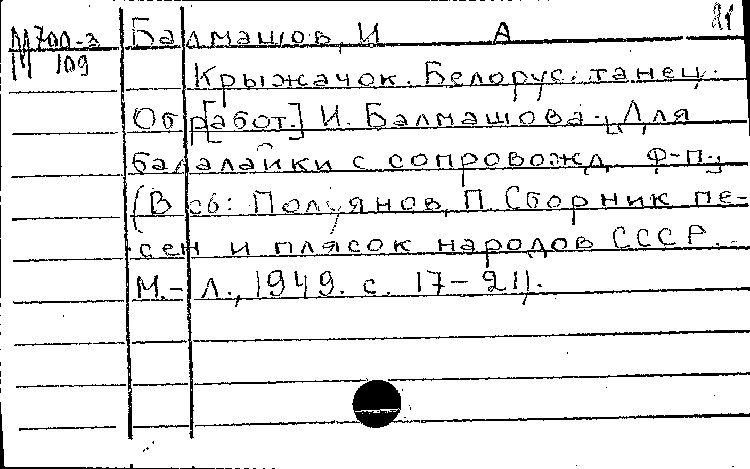 21
М 700-2 Балмашов, И А
М 109
Крыжачок. Белорус. танец.
Обр[абот.] И. Балмашова. Для
балалайки с сопровожд. ф-п.
(В сб: Полуянов, П. Сборник пе-
сен и плясок народов СССР.
М.-Л., 1949. с. 17-21).